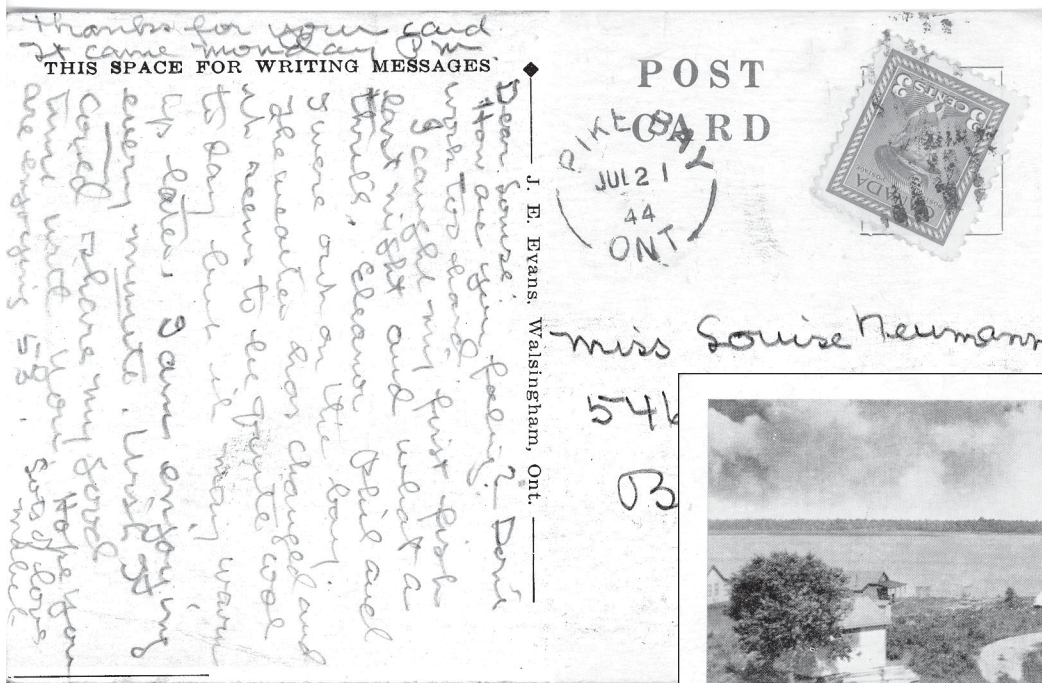 Thanks for your card
It came Monday P m
THIS SPACE FOR WRITING MESSAGES
Dear Louise:
How are you feeling? Don't
work too hard.
I caught my first fish
last night and what a
thrill. Eleanor Phil and
I were out on the bay.
The weather has changed and
it seems to be quite cool
to day but it may warm
up later. I am enjoying
every minute. Wish it
could share my good
time with you. Hope you
are enjoying 58.
Lots of love
J. E. Evans. Walsingham, Ont.
POST
CARD
PIKE BAY
JUL 21
44
ONT
3 CENTS 3
Miss Louise Neumann
546
B